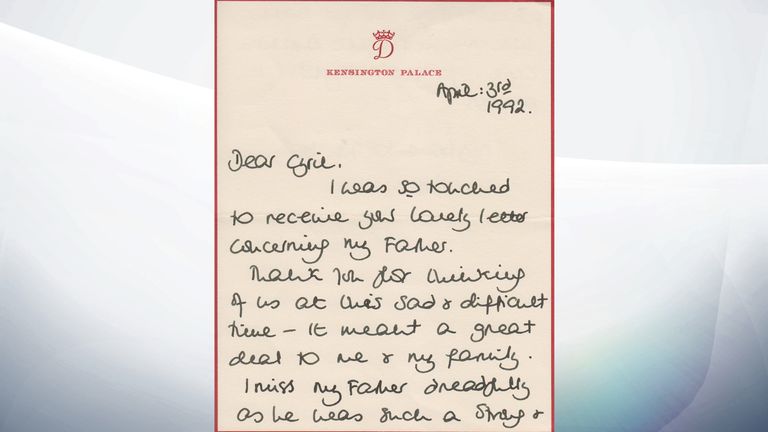 D
KENSINGTON PALACE
April: 3rd
1992.
Dear Cyril.
I was so touched
to receive your lovely letter
concerning my Father.
Thank you for thinking
of us at this sad & difficult
time – it meant a great
deal to me & my family.
I miss my Father dreadfully
as he was such a strong &